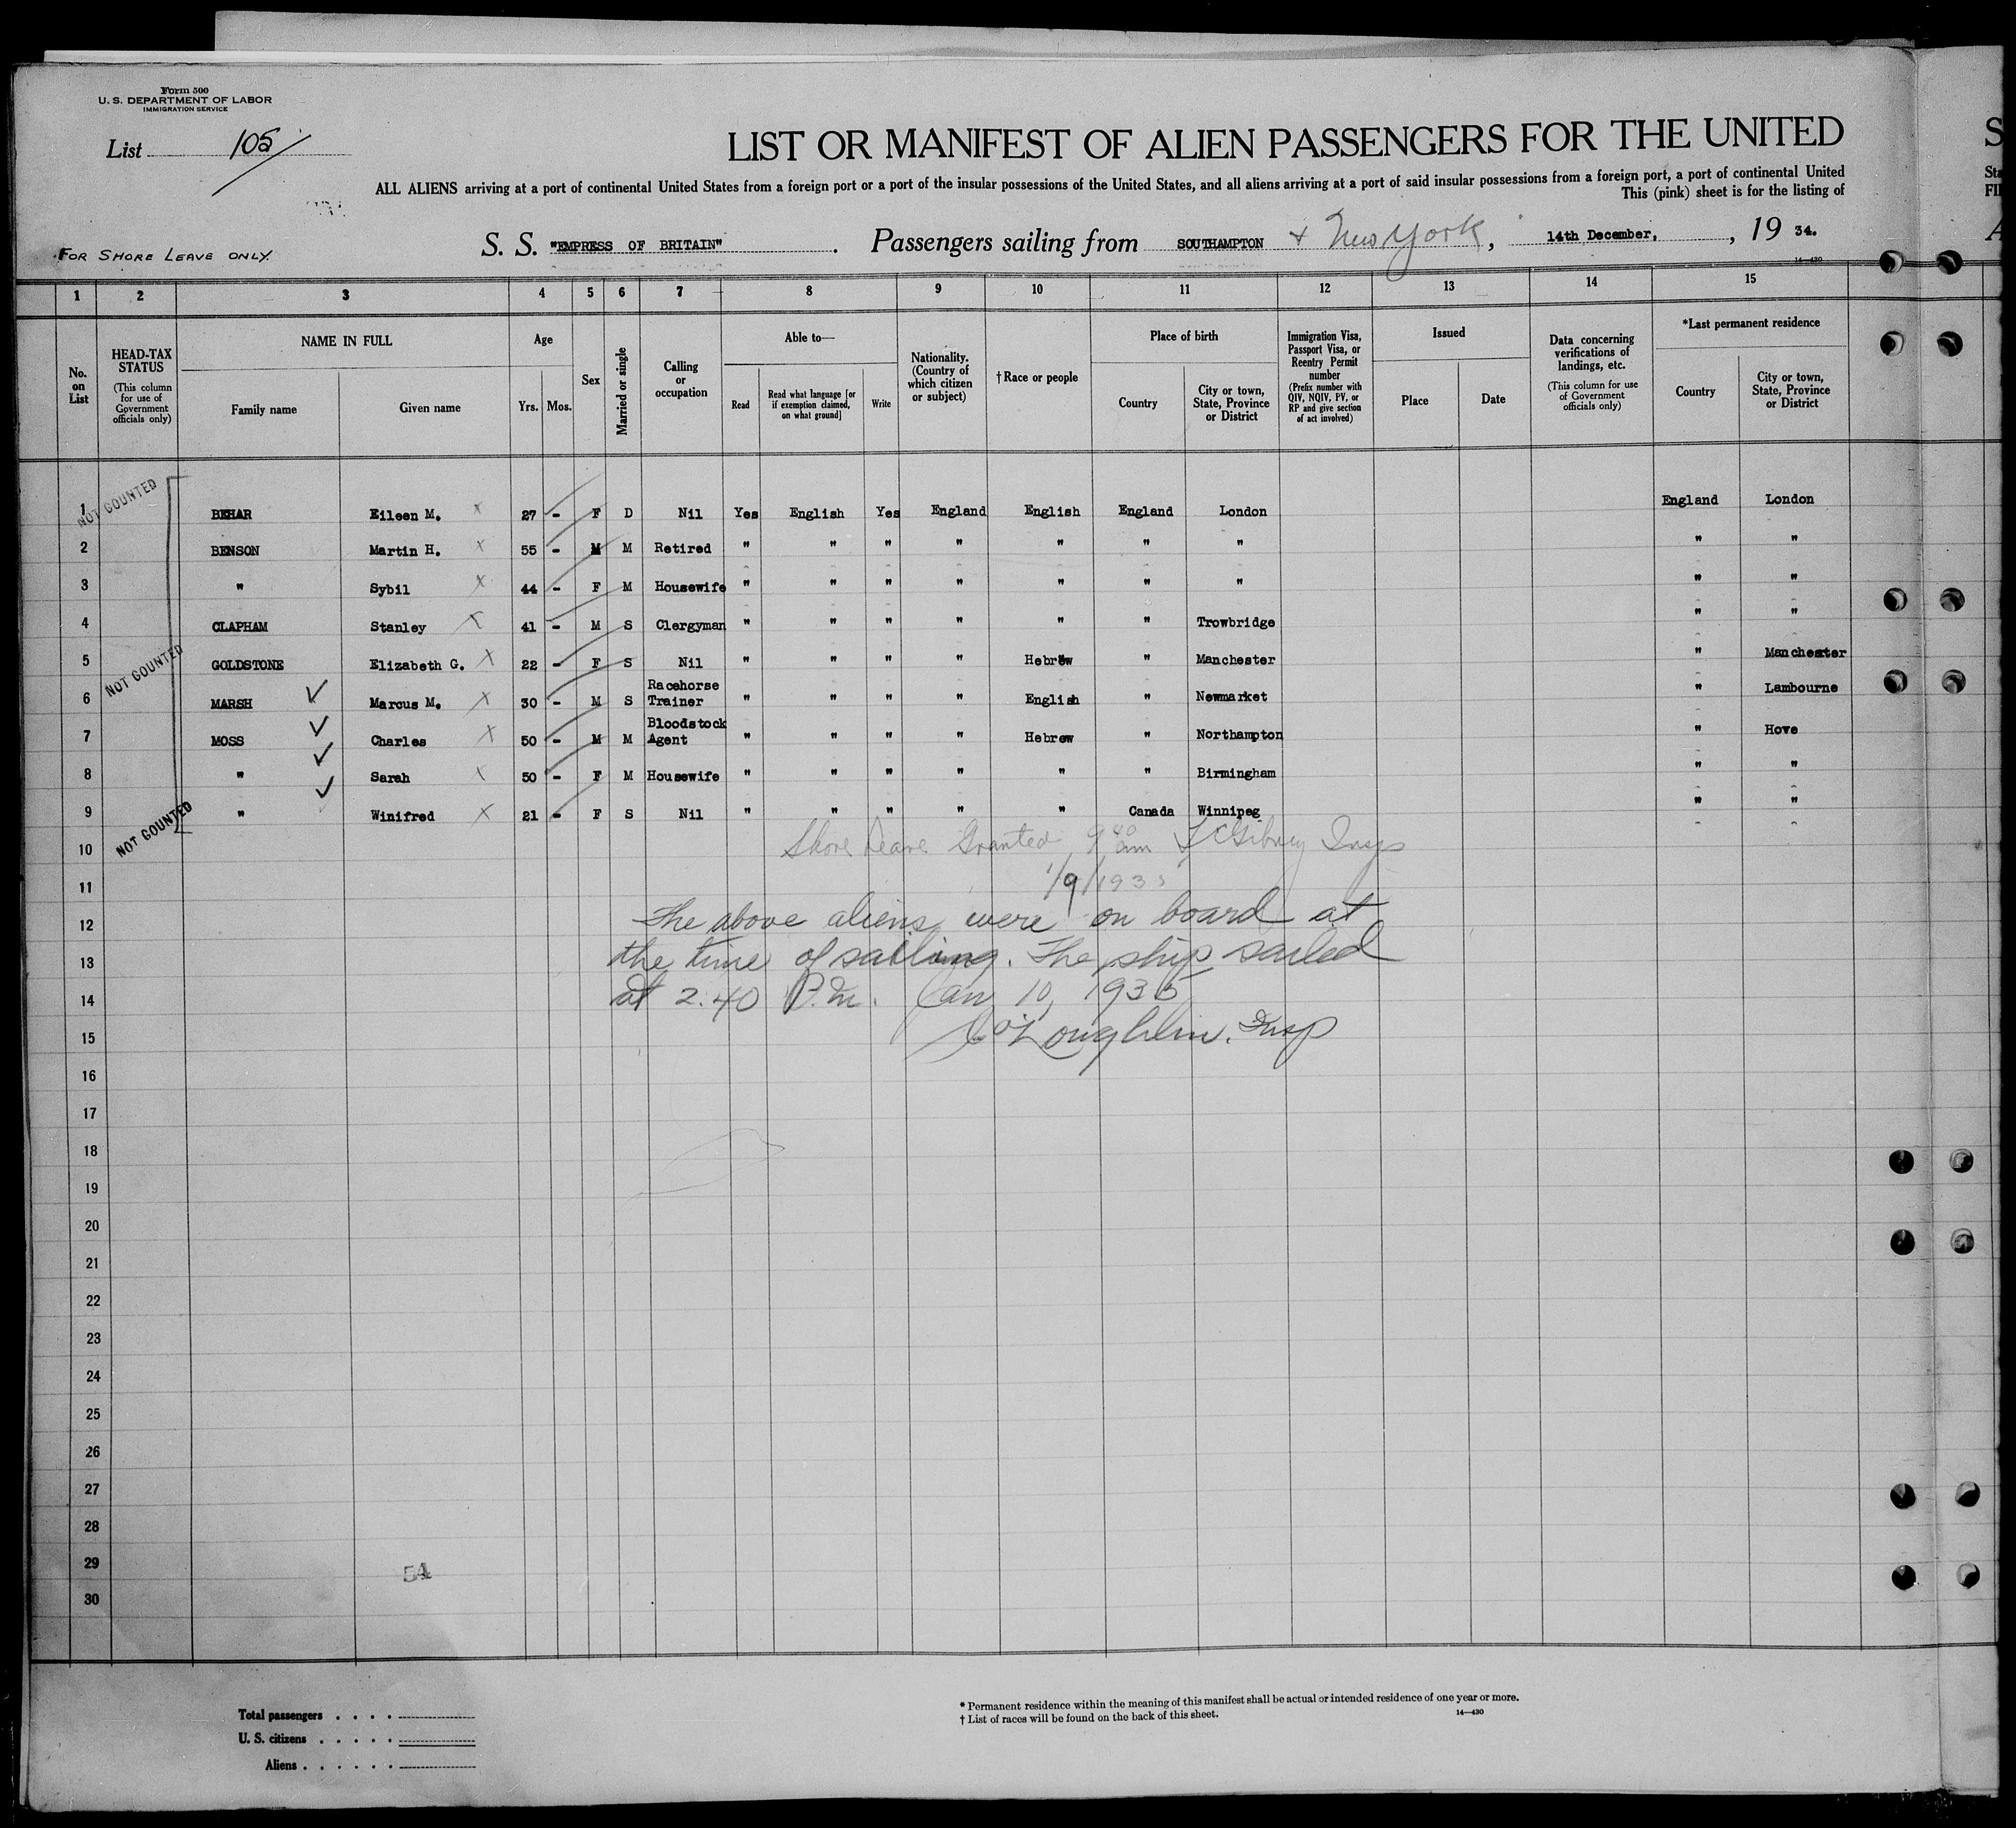 Form 500
U. S. DEPARTMENT OF LABOR
IMMIGRATION SERVICE
List 105
LIST OR MANIFEST OF ALIEN PASSENGERS FOR THE UNITED
ALL ALIENS arriving at a port of continental United States from a foreign port or a port of the insular possessions of the United States, and all aliens arriving at a port of said insular possessions from a foreign port, a port of continental United
This (pink) sheet is for the listing of
FOR SHORE LEAVE ONLY.
S. S. "EMPRESS OF BRITAIN" . Passengers sailing from SOUTHAMPTON + New York, 14th December, , 19 34.
14—430
1 2 3 4 5 6 7 8 9 10 11 12 13 14 15
No. on List
HEAD-TAX STATUS (This column for use of Government officials only)
NAME IN FULL
Family name Given name
Age
Yrs. Mos.
Sex
Married or single
Calling or occupation
Able to—
Read
Read what language [or if exemption claimed, on what ground]
Write
Nationality. (Country of which citizen or subject)
†Race or people
Place of birth
Country
City or town, State, Province or District
Immigration Visa, Passport Visa, or Reentry Permit number (Prefix number with QIV, NQIV, PV, or RP and give section of act involved)
Issued
Place Date
Data concerning verifications of landings, etc. (This column for use of Government officials only)
*Last permanent residence
Country
City or town, State, Province or District
NOT COUNTED
1 BEHAR Eileen M. 27 - F D Nil Yes English Yes England English England London England London
2 BENSON Martin H. 55 - M M Retired " " " " " " " " "
3 " Sybil 44 - F M Housewife " " " " " " " " "
4 CLAPHAM Stanley 41 - M S Clergyman " " " " " " Trowbridge " "
NOT COUNTED
5 GOLDSTONE Elizabeth G. 22 - F S Nil " " " " Hebrew " Manchester " Manchester
6 MARSH Marcus M. 30 - M S Racehorse Trainer " " " " English " Newmarket " Lambourne
7 MOSS Charles 50 - M M Bloodstock Agent " " " " Hebrew " Northampton " Hove
8 " Sarah 50 - F M Housewife " " " " " " Birmingham " "
9 " Winifred 21 - F S Nil " " " " " Canada Winnipeg " "
NOT COUNTED
10 Shore Leave Granted 9 40 am Insp
11 1/9/1935
12 The above aliens were on board at
13 the time of sailing. The ship sailed
14 at 2.40 P.M. Jan 10, 1935
15 O'Loughlin. Insp
16
17
18
19
20
21
22
23
24
25
26
27
28
29
54
30
Total passengers . . . .
U. S. citizens . . . . .
Aliens . . . . . .
* Permanent residence within the meaning of this manifest shall be actual or intended residence of one year or more.
† List of races will be found on the back of this sheet.
14—430